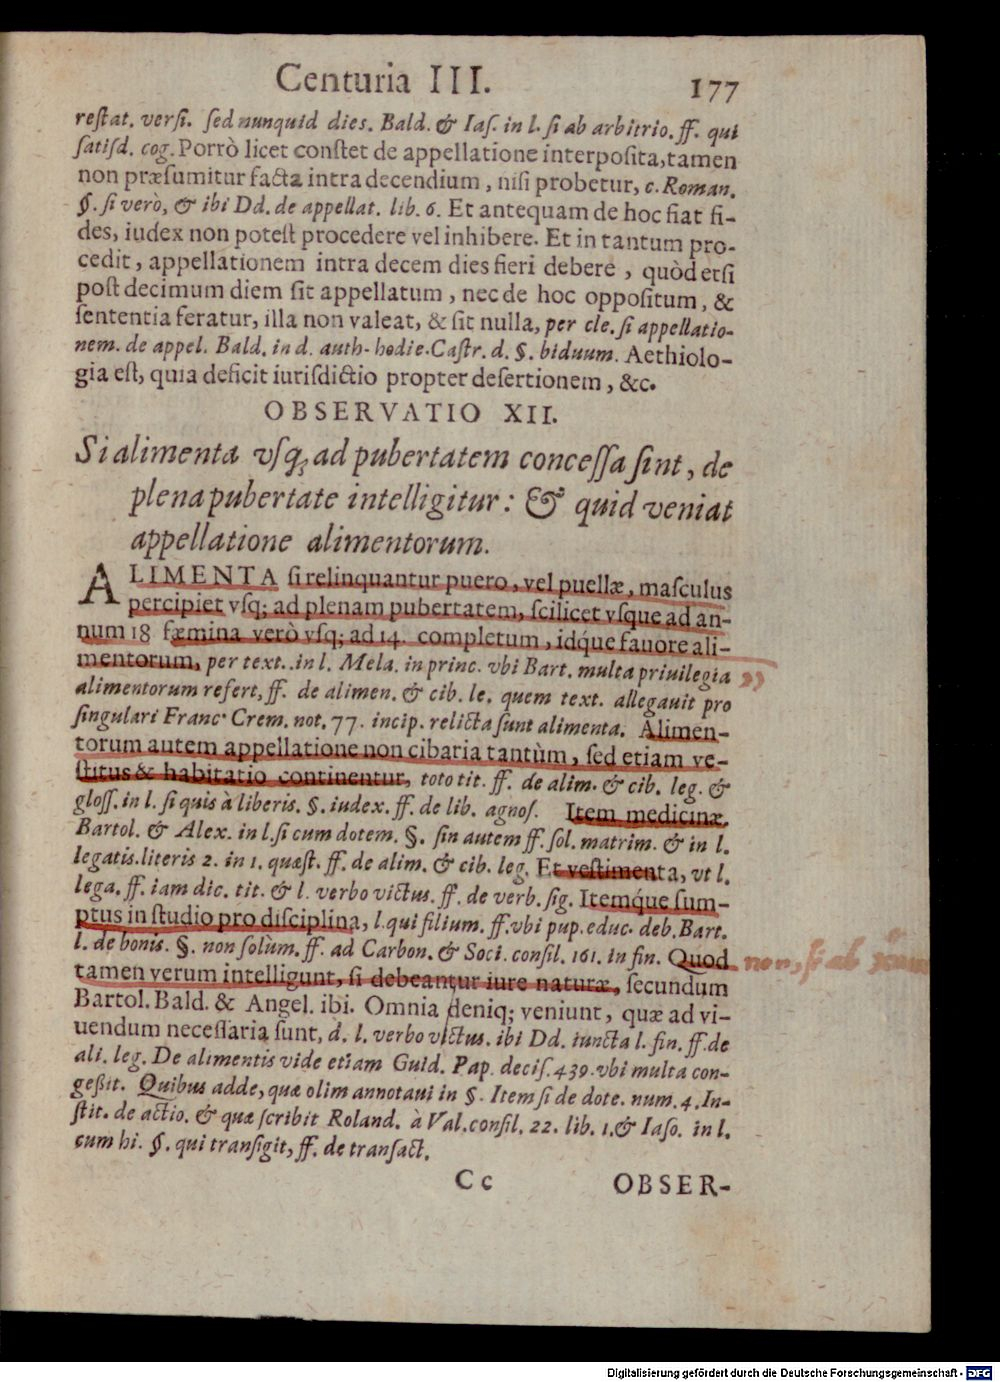 Centuria III. 177
reſtat. verſi. ſed nunquid dies. Bald. & Iaſ. in l. ſi ab arbitrio. ff. qui
ſatiſd. cog. Porrò licet conſtet de appellatione interpoſita, tamen
non præſumitur facta intra decendium, niſi probetur, c. Roman.
§. ſi verò, & ibi Dd. de appellat. lib. 6. Et antequam de hoc fiat fi-
des, iudex non poteſt procedere vel inhibere. Et in tantum pro-
cedit, appellationem intra decem dies fieri debere, quòd etſi
poſt decimum diem ſit appellatum, nec de hoc oppoſitum, &
ſententia feratur, illa non valeat, & ſit nulla, per cle. ſi appellatio-
nem. de appel. Bald. in d. auth. hodie. Caſtr. d. §. biduum. Aethiolo-
gia eſt, quia deficit iuriſdictio propter deſertionem, &c.
OBSERVATIO XII.
Si alimenta vſq; ad pubertatem conceſſa ſint, de
plena pubertate intelligitur: & quid veniat
appellatione alimentorum.
ALIMENTA ſi relinquantur puero, vel puellæ, maſculus
percipiet vſq; ad plenam pubertatem, ſcilicet vſque ad an-
num 18 fæmina verò vſq; ad 14. completum, idq́ue fauore ali-
mentorum, per text. in l. Mela. in princ. vbi Bart. multa priuilegia
alimentorum refert, ff. de alimen. & cib. le. quem text. allegauit pro
ſingulari Franc. Crem. not. 77. incip. relicta ſunt alimenta. Alimen-
torum autem appellatione non cibaria tantùm, ſed etiam ve-
ſtitus & habitatio continentur, toto tit. ff. de alim. & cib. leg. &
gloſſ. in l. ſi quis à liberis. §. iudex. ff. de lib. agnoſ. Item medicinæ.
Bartol. & Alex. in l. ſi cum dotem. §. ſin autem ff. ſol. matrim. & in l.
legatis. literis 2. in 1. quæſt. ff. de alim. & cib. leg. Et veſtimenta, vt l.
lega. ff. iam dic. tit. & l. verbo victus. ff. de verb. ſig. Itemq́ue ſum-
ptus in ſtudio pro diſciplina, l. qui filium. ff. vbi pup. educ. deb. Bart.
l. de bonis. §. non ſolùm. ff. ad Carbon. & Soci. conſil. 161. in fin. Quod
non, ſi ab
tamen verum intelligunt, ſi debeantur iure naturæ, ſecundum
Bartol. Bald. & Angel. ibi. Omnia deniq; veniunt, quæ ad vi-
uendum neceſſaria ſunt, d. l. verbo victus. ibi Dd. iuncta l. fin. ff. de
ali. leg. De alimentis vide etiam Guid. Pap. deciſ. 439. vbi multa con-
geßit. Quibus adde, quæ olim annotaui in §. Item ſi de dote. num. 4. In-
ſtit. de actio. & quæ ſcribit Roland. à Val. conſil. 22. lib. 1. & Iaſo. in l.
cum hi. §. qui tranſigit, ff. de tranſact.
Cc OBSER-
Digitalisierung gefördert durch die Deutsche Forschungsgemeinschaft - DFG